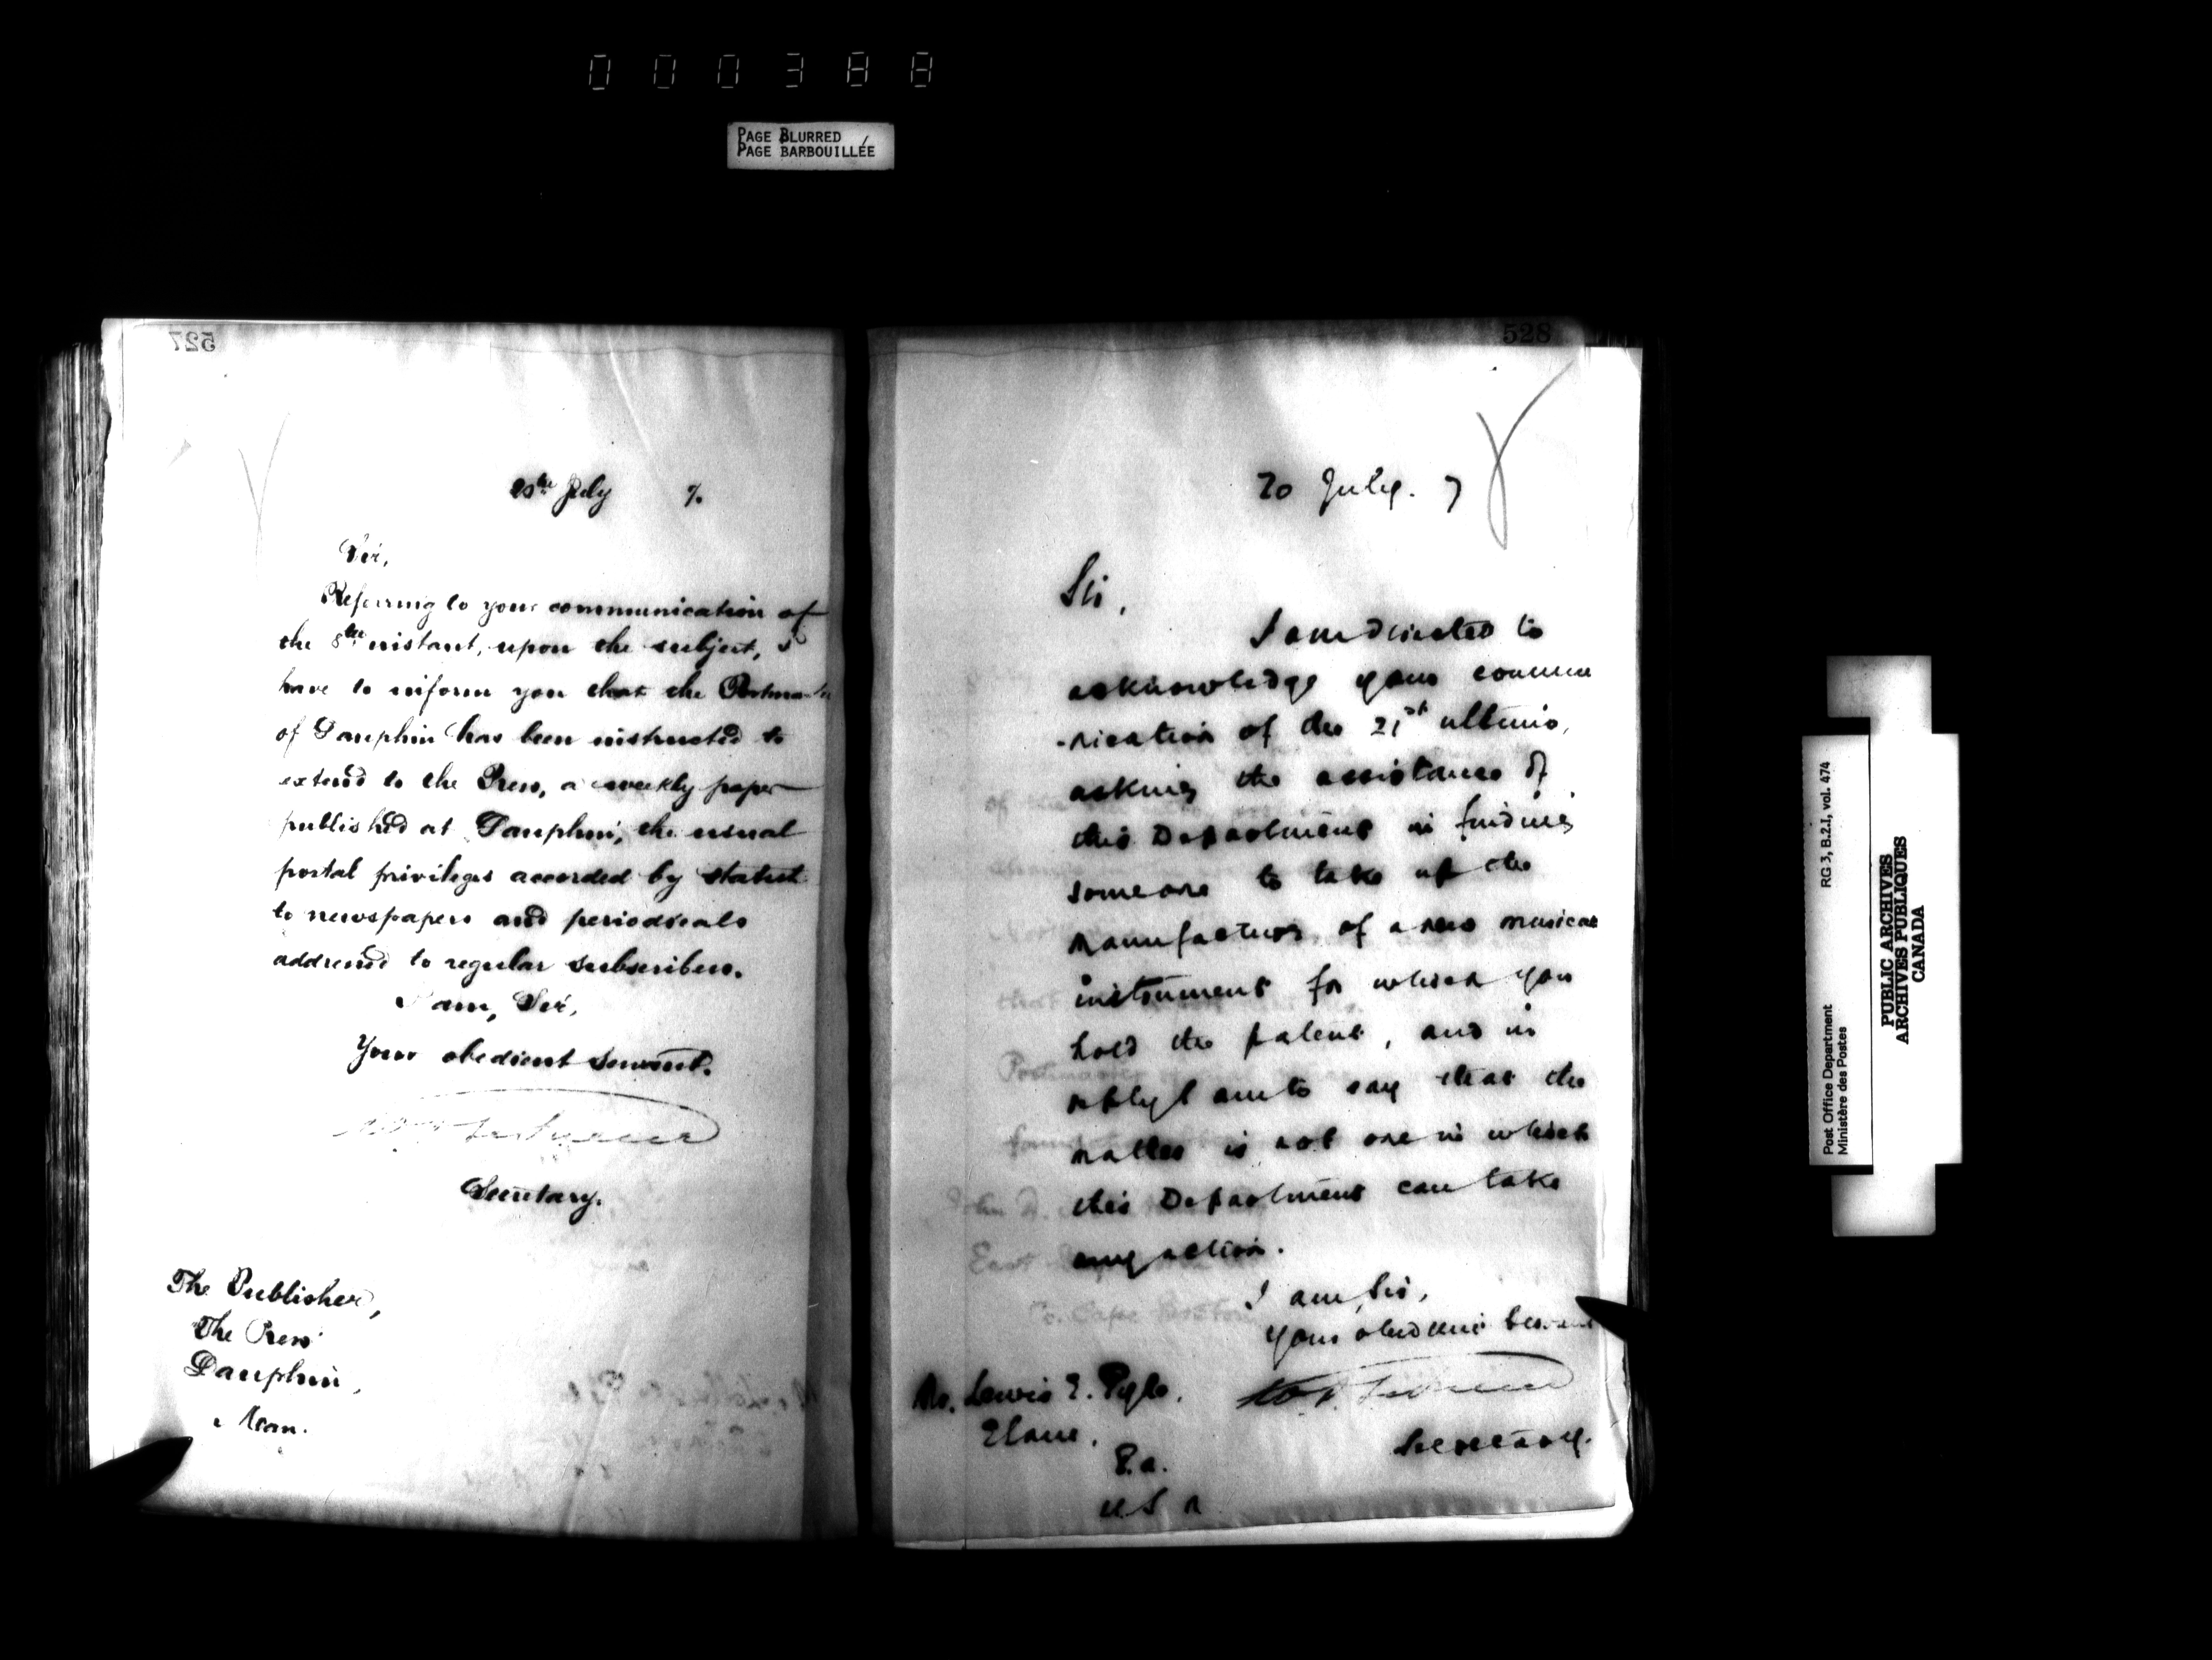 000388
PAGE BLURRED
PAGE BARBOUILLÉE
527
20th July 7.
Sir,
Referring to your communication of
the 8th instant, upon the subject, I
have to inform you that the Postmaster
of Dauphin has been instructed to
extend to the Press, a weekly paper
published at Dauphin, the usual
postal privileges accorded by statute
to newspapers and periodicals
addressed to regular subscribers.
I am, Sir,
Your obedient servant.
Secretary.
The Publisher,
The Press
Dauphin,
Man.
528
20 July. 7
Sir,
I am directed to
acknowledge your commu
-nication of the 21st ultimo,
asking the assistance of
this Department in finding
someone to take up the
manufacture of a new musical
instrument for which you
hold the patent, and in
reply I am to say that the
matter is not one in which
this Department can take
any action.
I am, Sir,
Your obedient servant
Secretary.
Mr. Lewis E. Pyle,
Pa.
U S A
Post Office Department
Ministère des Postes
RG 3, B.2.I, vol. 474
PUBLIC ARCHIVES
ARCHIVES PUBLIQUES
CANADA